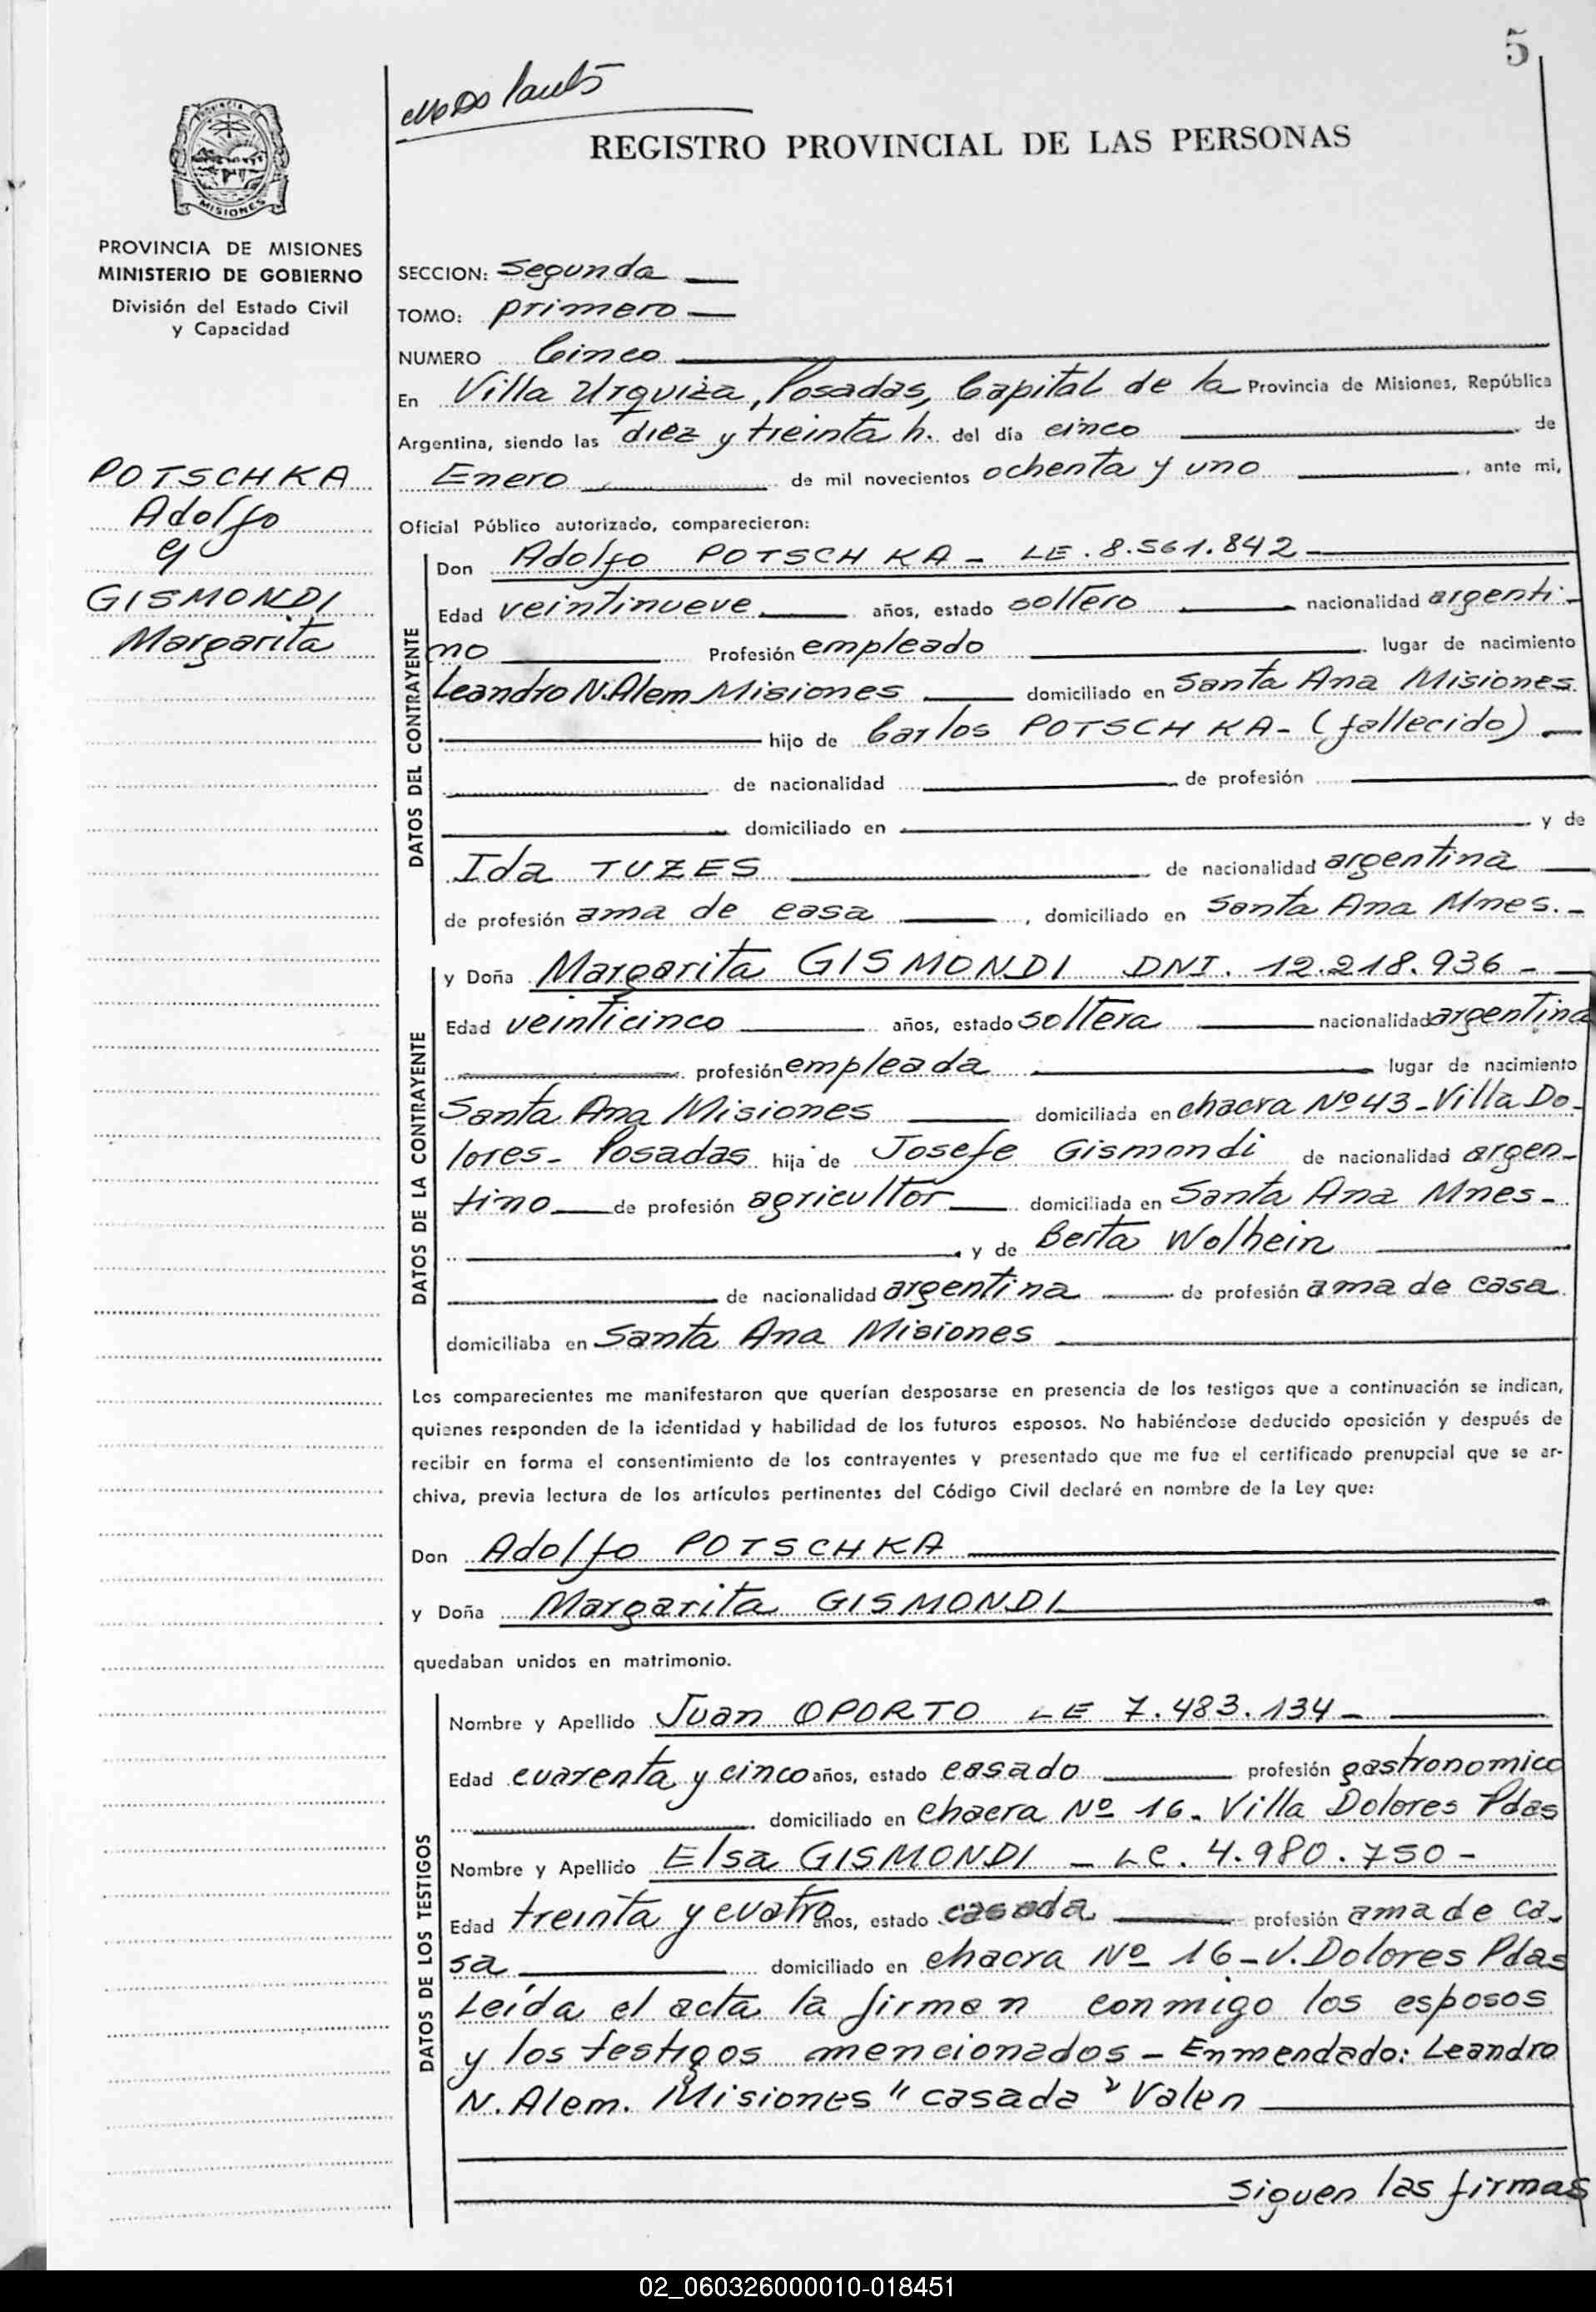 5
REGISTRO PROVINCIAL DE LAS PERSONAS
PROVINCIA
MISIONES
PROVINCIA DE MISIONES
MINISTERIO DE GOBIERNO
División del Estado Civil
y Capacidad
POTSCHKA
Adolfo
y
GISMONDI
Margarita
SECCION: Segunda
TOMO: primero
NUMERO Cinco
En Villa Urquiza, Posadas, Capital de la Provincia de Misiones, República
Argentina, siendo las diez y treinta h. del día cinco de
Enero de mil novecientos ochenta y uno, ante mi,
Oficial Público autorizado, comparecieron:
DATOS DEL CONTRAYENTE
Don Adolfo POTSCHKA - LE. 8.561.842 -
Edad veintinueve años, estado soltero nacionalidad argenti-
no Profesión empleado lugar de nacimiento
Leandro N. Alem Misiones domiciliado en Santa Ana Misiones
hijo de Carlos POTSCHKA - (fallecido)
de nacionalidad de profesión
domiciliado en y de
Ida TUZES de nacionalidad argentina
de profesión ama de casa, domiciliado en Santa Ana Mnes. -
DATOS DE LA CONTRAYENTE
y Doña Margarita GISMONDI DNI. 12.218.936 -
Edad veinticinco años, estado soltera nacionalidad argentina
profesión empleada lugar de nacimiento
Santa Ana Misiones domiciliada en chacra Nº 43 - Villa Do-
lores - Posadas hija de Josefe Gismondi de nacionalidad argen-
tino de profesión agricultor domiciliada en Santa Ana Mnes -
y de Berta Wolhein
de nacionalidad argentina de profesión ama de casa
domiciliaba en Santa Ana Misiones
Los comparecientes me manifestaron que querían desposarse en presencia de los testigos que a continuación se indican,
quienes responden de la identidad y habilidad de los futuros esposos. No habiéndose deducido oposición y después de
recibir en forma el consentimiento de los contrayentes y presentado que me fue el certificado prenupcial que se ar-
chiva, previa lectura de los artículos pertinentes del Código Civil declaré en nombre de la Ley que:
Don Adolfo POTSCHKA
y Doña Margarita GISMONDI
quedaban unidos en matrimonio.
DATOS DE LOS TESTIGOS
Nombre y Apellido Juan OPORTO LE 7.483.134 -
Edad cuarenta y cinco años, estado casado profesión gastronomico
domiciliado en chacra Nº 16 - Villa Dolores Pdas
Nombre y Apellido Elsa GISMONDI - LC. 4.980.750 -
Edad treinta y cuatro años, estado casada profesión ama de ca-
sa domiciliado en chacra Nº 16 - V. Dolores Pdas
Leída el acta la firman conmigo los esposos
y los testigos mencionados - Enmendado: Leandro
N. Alem. Misiones "casada" Valen
Siguen las firmas
02_060326000010-018451